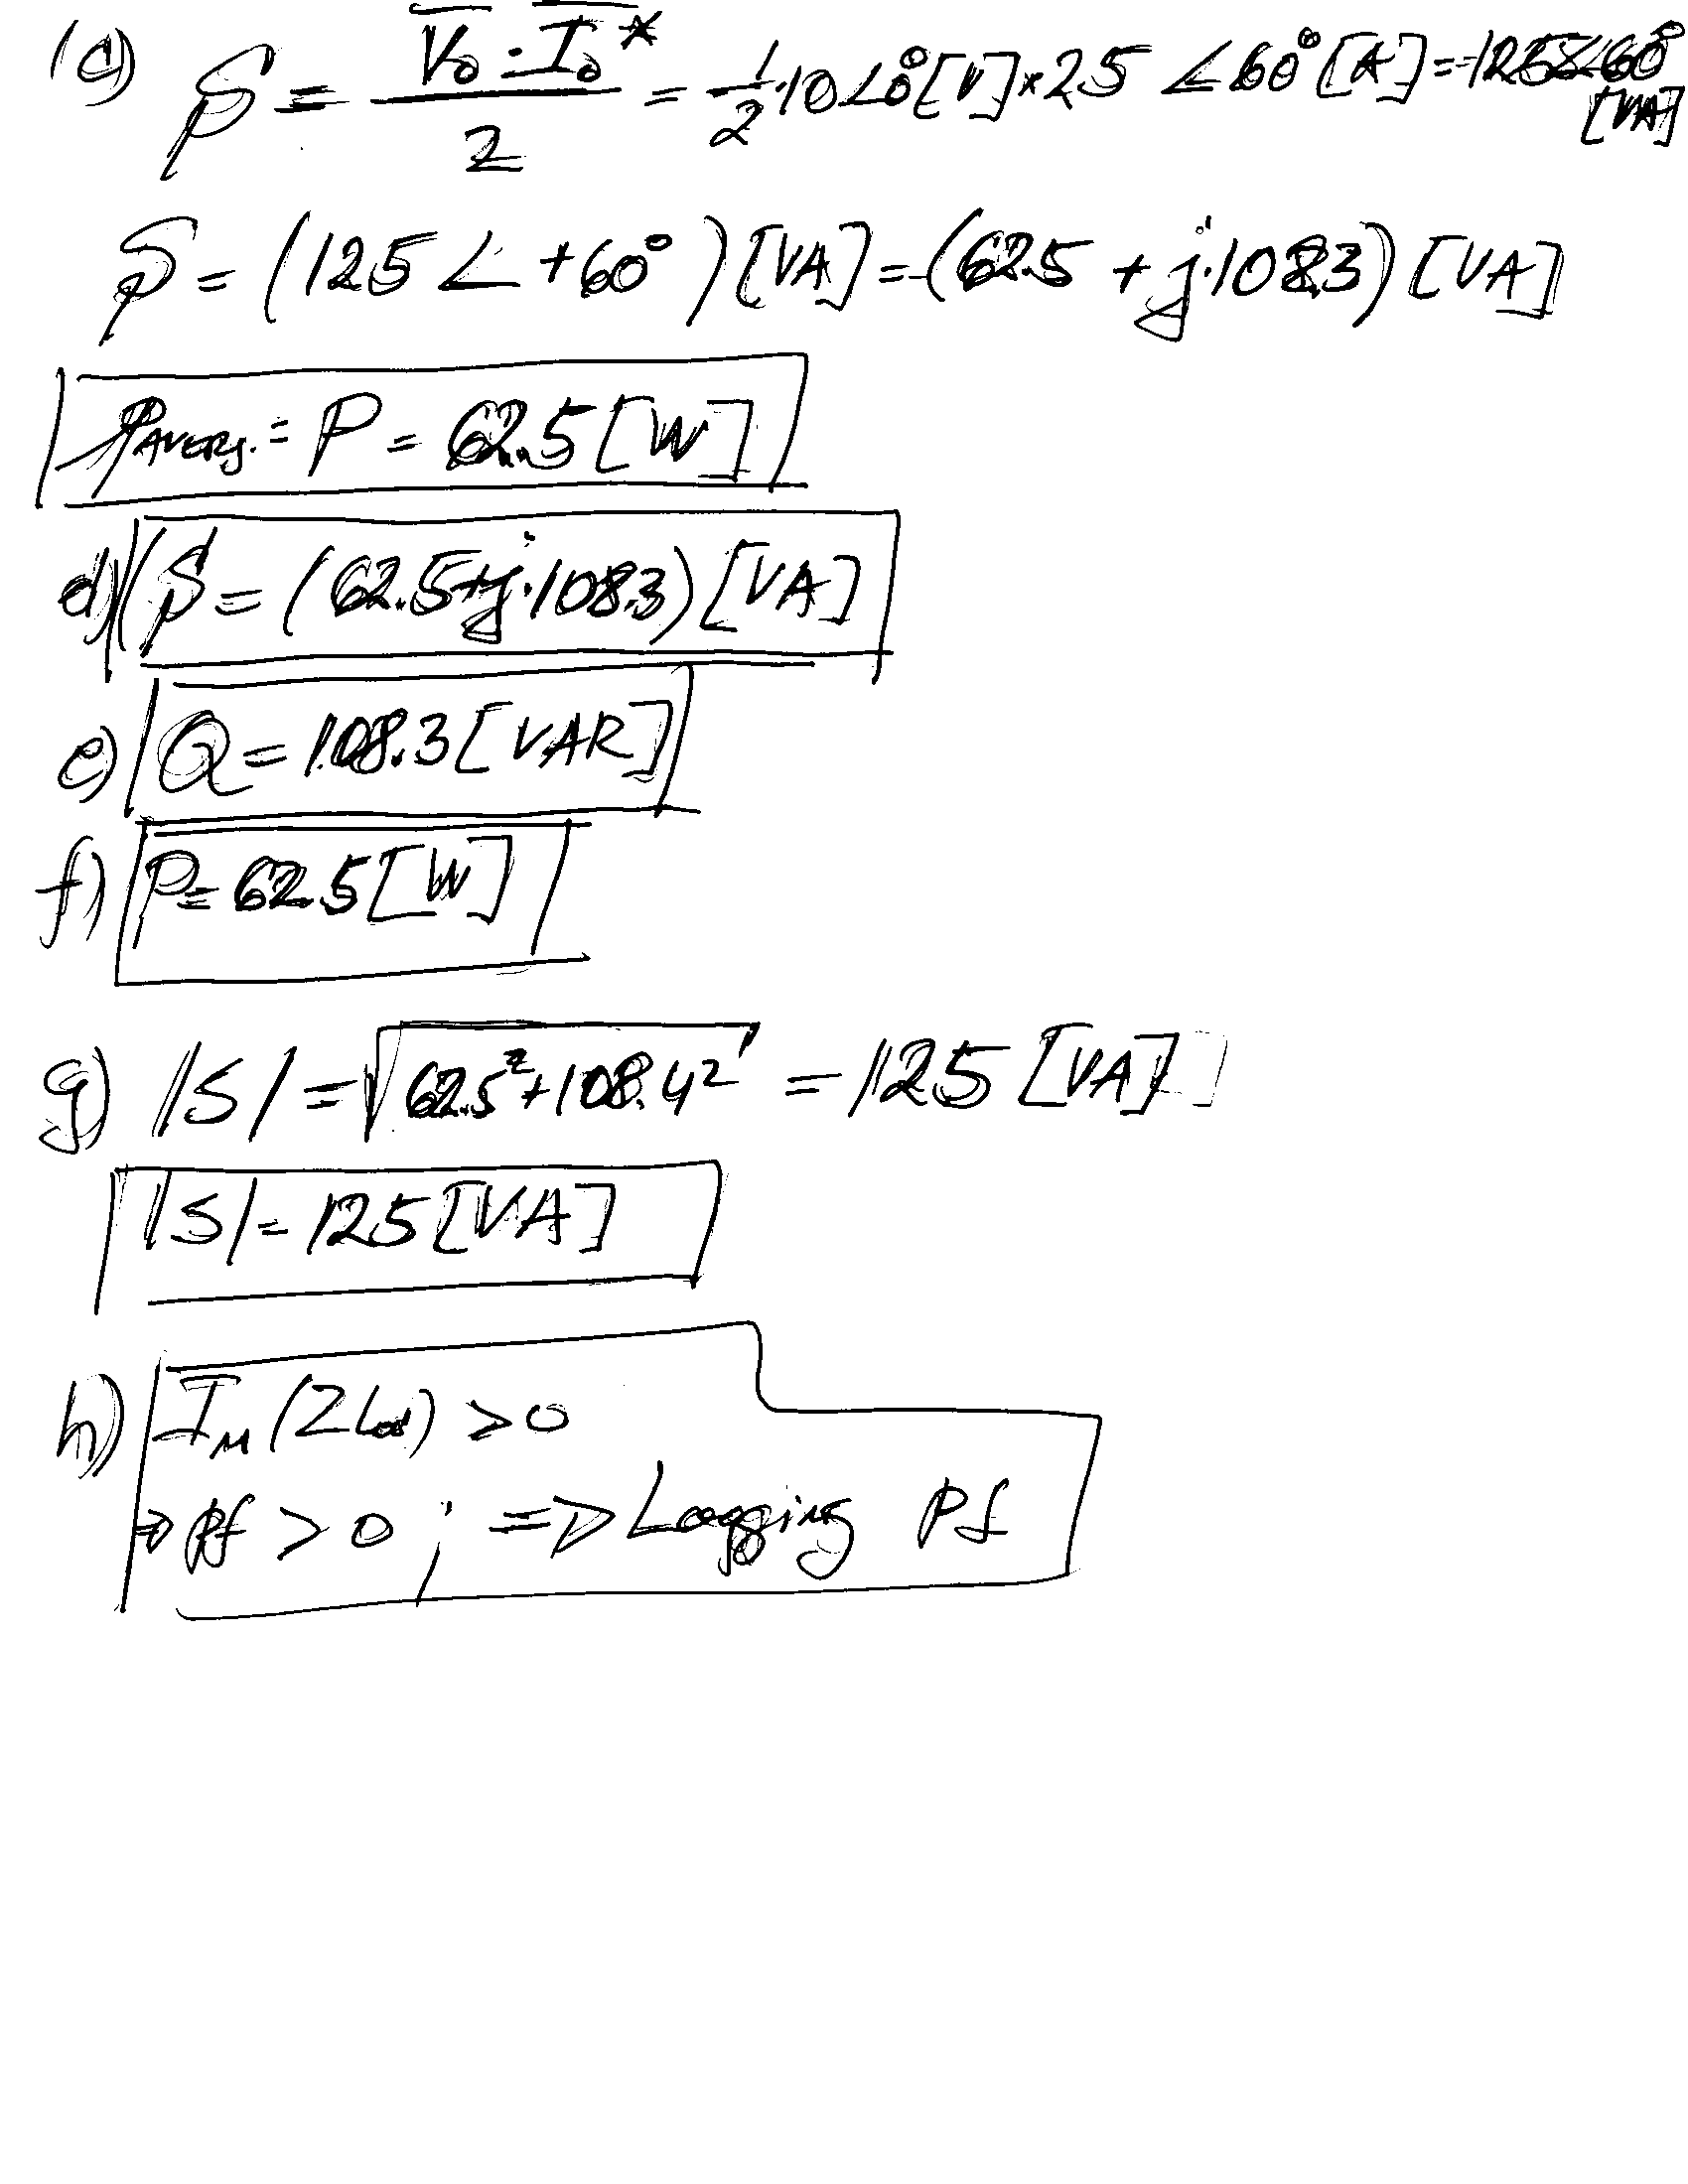 (c) S = V̅o · I̅o* / 2 = 1/2 · 10∠0° [V] × 25 ∠60° [A] = 125∠60° [VA]
S = (125 ∠ +60°) [VA] = (62.5 + j·108.3) [VA]
PAVERG. = P = 62.5 [W]
d) S = (62.5 + j·108.3) [VA]
e) Q = 108.3 [VAR]
f) P = 62.5 [W]
g) |S| = √62.5² + 108.4² = 125 [VA]
|S| = 125 [VA]
h) IM (ZLoad) > 0
⇒ pf > 0 ; ⇒ Lagging Pf